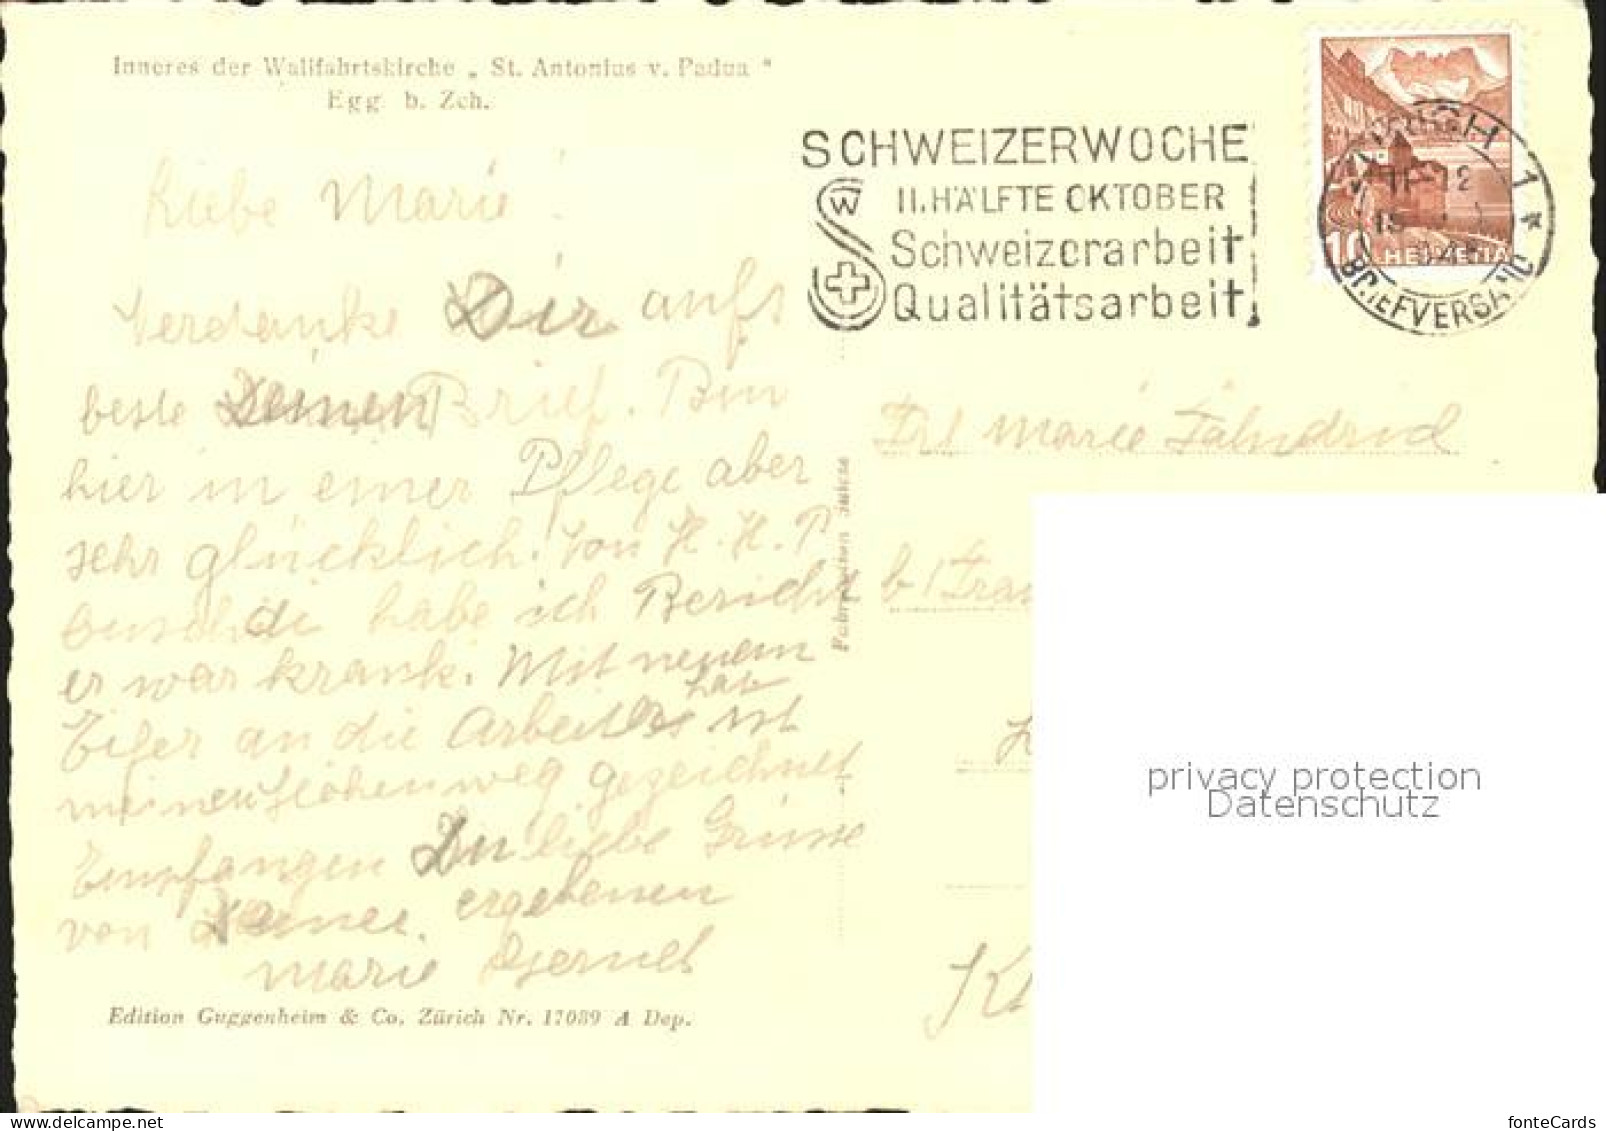 Inneres der Wallfahrtskirche „ St. Antonius v. Padua "
Egg b. Zch.
Liebe Marie!
Verdanke Dir aufs
beste Deinen Brief. Bin
hier in einer Pflege aber
sehr glücklich. Von H. H. P.
habe ich Bericht
er war krank. Mit neuem
Eifer an die Arbeit
gezeichnet
Empfangen Du liebe Grüsse
von Deiner ergebenen
Marie
Edition Guggenheim & Co. Zürich Nr. 17089 A Dep.
Fabrication Suisse
SCHWEIZERWOCHE
II. HÄLFTE OKTOBER
Schweizerarbeit
Qualitätsarbeit
W
ZÜRICH 1
11-12
BRIEFVERSAND
10 HELVETIA
Frl Marie
b/ Frau
privacy protection
Datenschutz
fonteCards